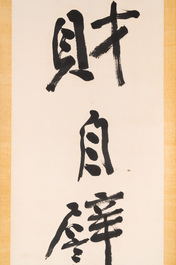 財自辟